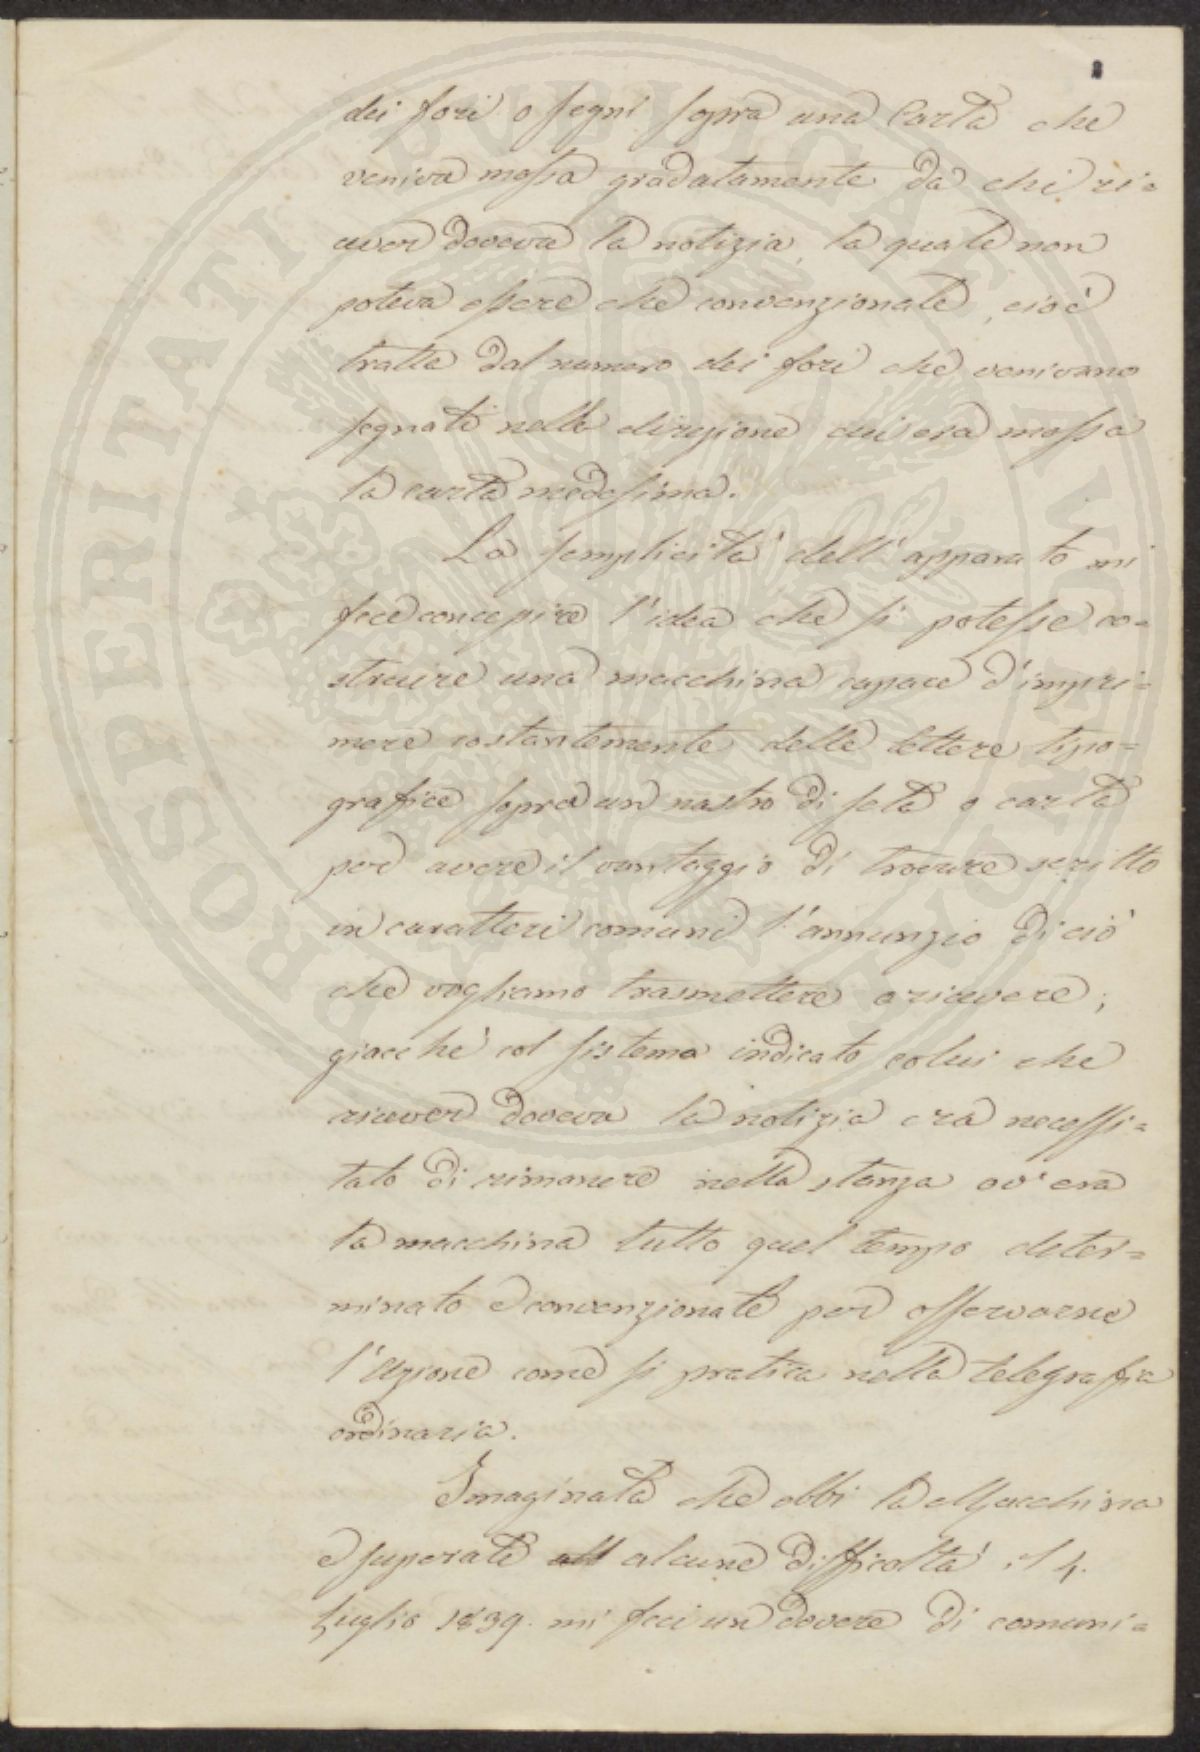 dei fori o segni sopra una Carta che
veniva mossa gradatamente da chi ri=
cever doveva la notizia, la quale non
poteva essere che convenzionale, cioè
tratta dal numero dei fori che venivano
segnati nella direzione cui era mossa
la carta medesima.
La semplicità dell'apparato mi
fece concepire l'idea che si potesse co=
struire una macchina capace d'impri=
mere costantemente delle lettere tipo=
grafice sopra un nastro di seta o carta
per avere il vantaggio di trovare scritto
in caratteri comuni l'annunzio di ciò
che vogliamo trasmettere o ricevere;
giacchè col sistema indicato colui che
ricever doveva la notizia era necessi=
tato di rimanere nella stanza ov'era
la macchina tutto quel tempo deter=
minato e convenzionale per osservarne
l'azione come si pratica nella telegrafia
ordinaria.
Imaginata che ebbi la Macchina
e superate alcune difficoltà il 4.
Luglio 1839. mi feci un dovere di comuni=
PROSPERITATI PUBLICAE AUGENDAE